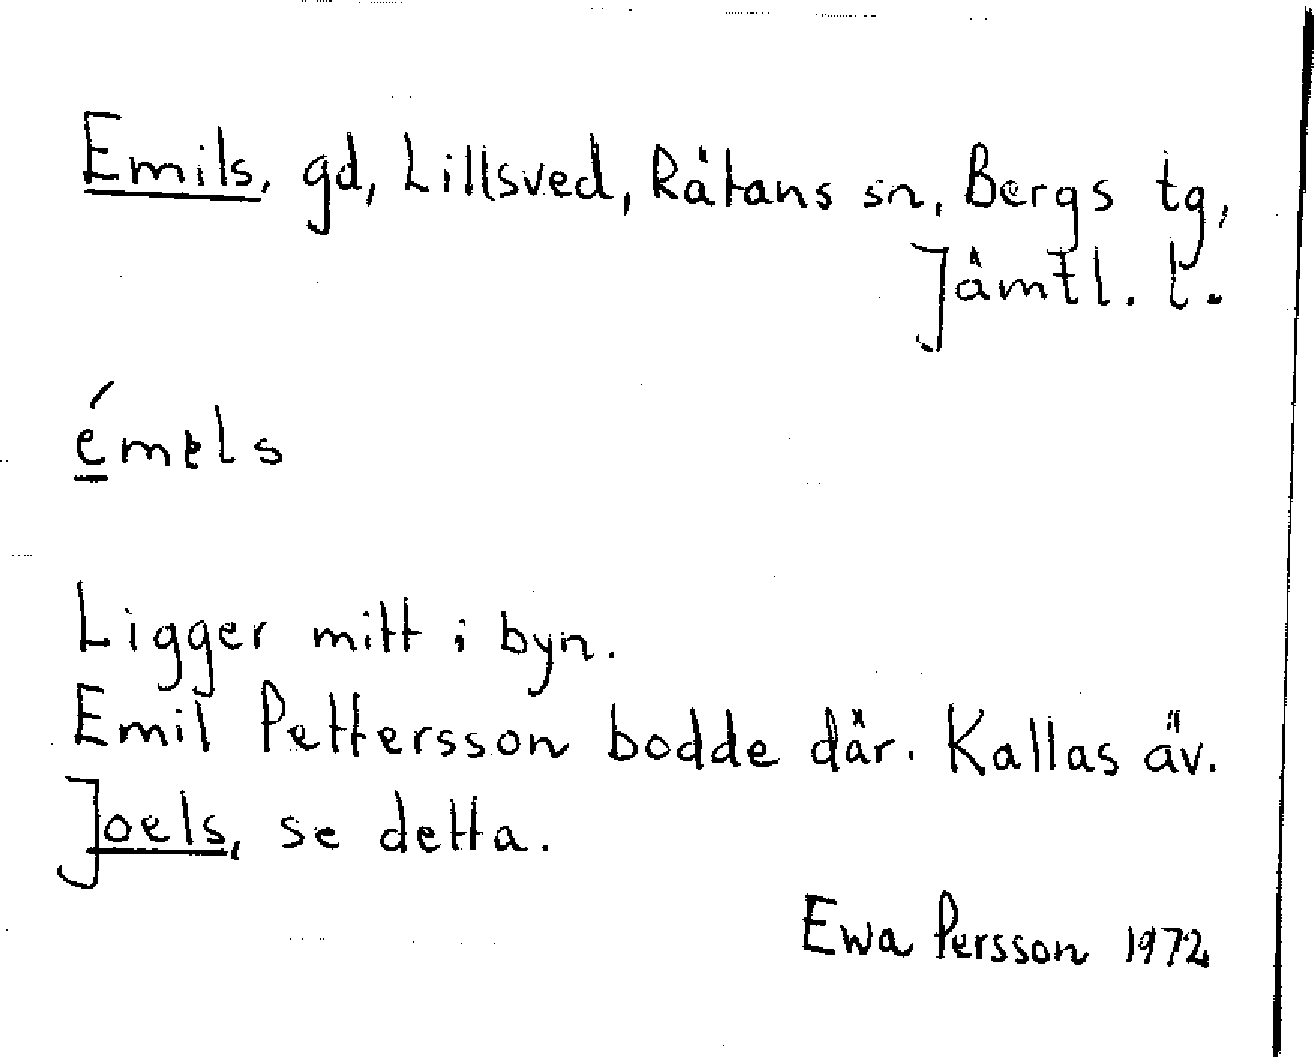 Emils, gd, Lillsved, Rätans sn, Bergs tg,
Jämtl. l.
émels
Ligger mitt i byn.
Emil Pettersson bodde där. Kallas äv.
Joels, se detta.
Ewa Persson 1972